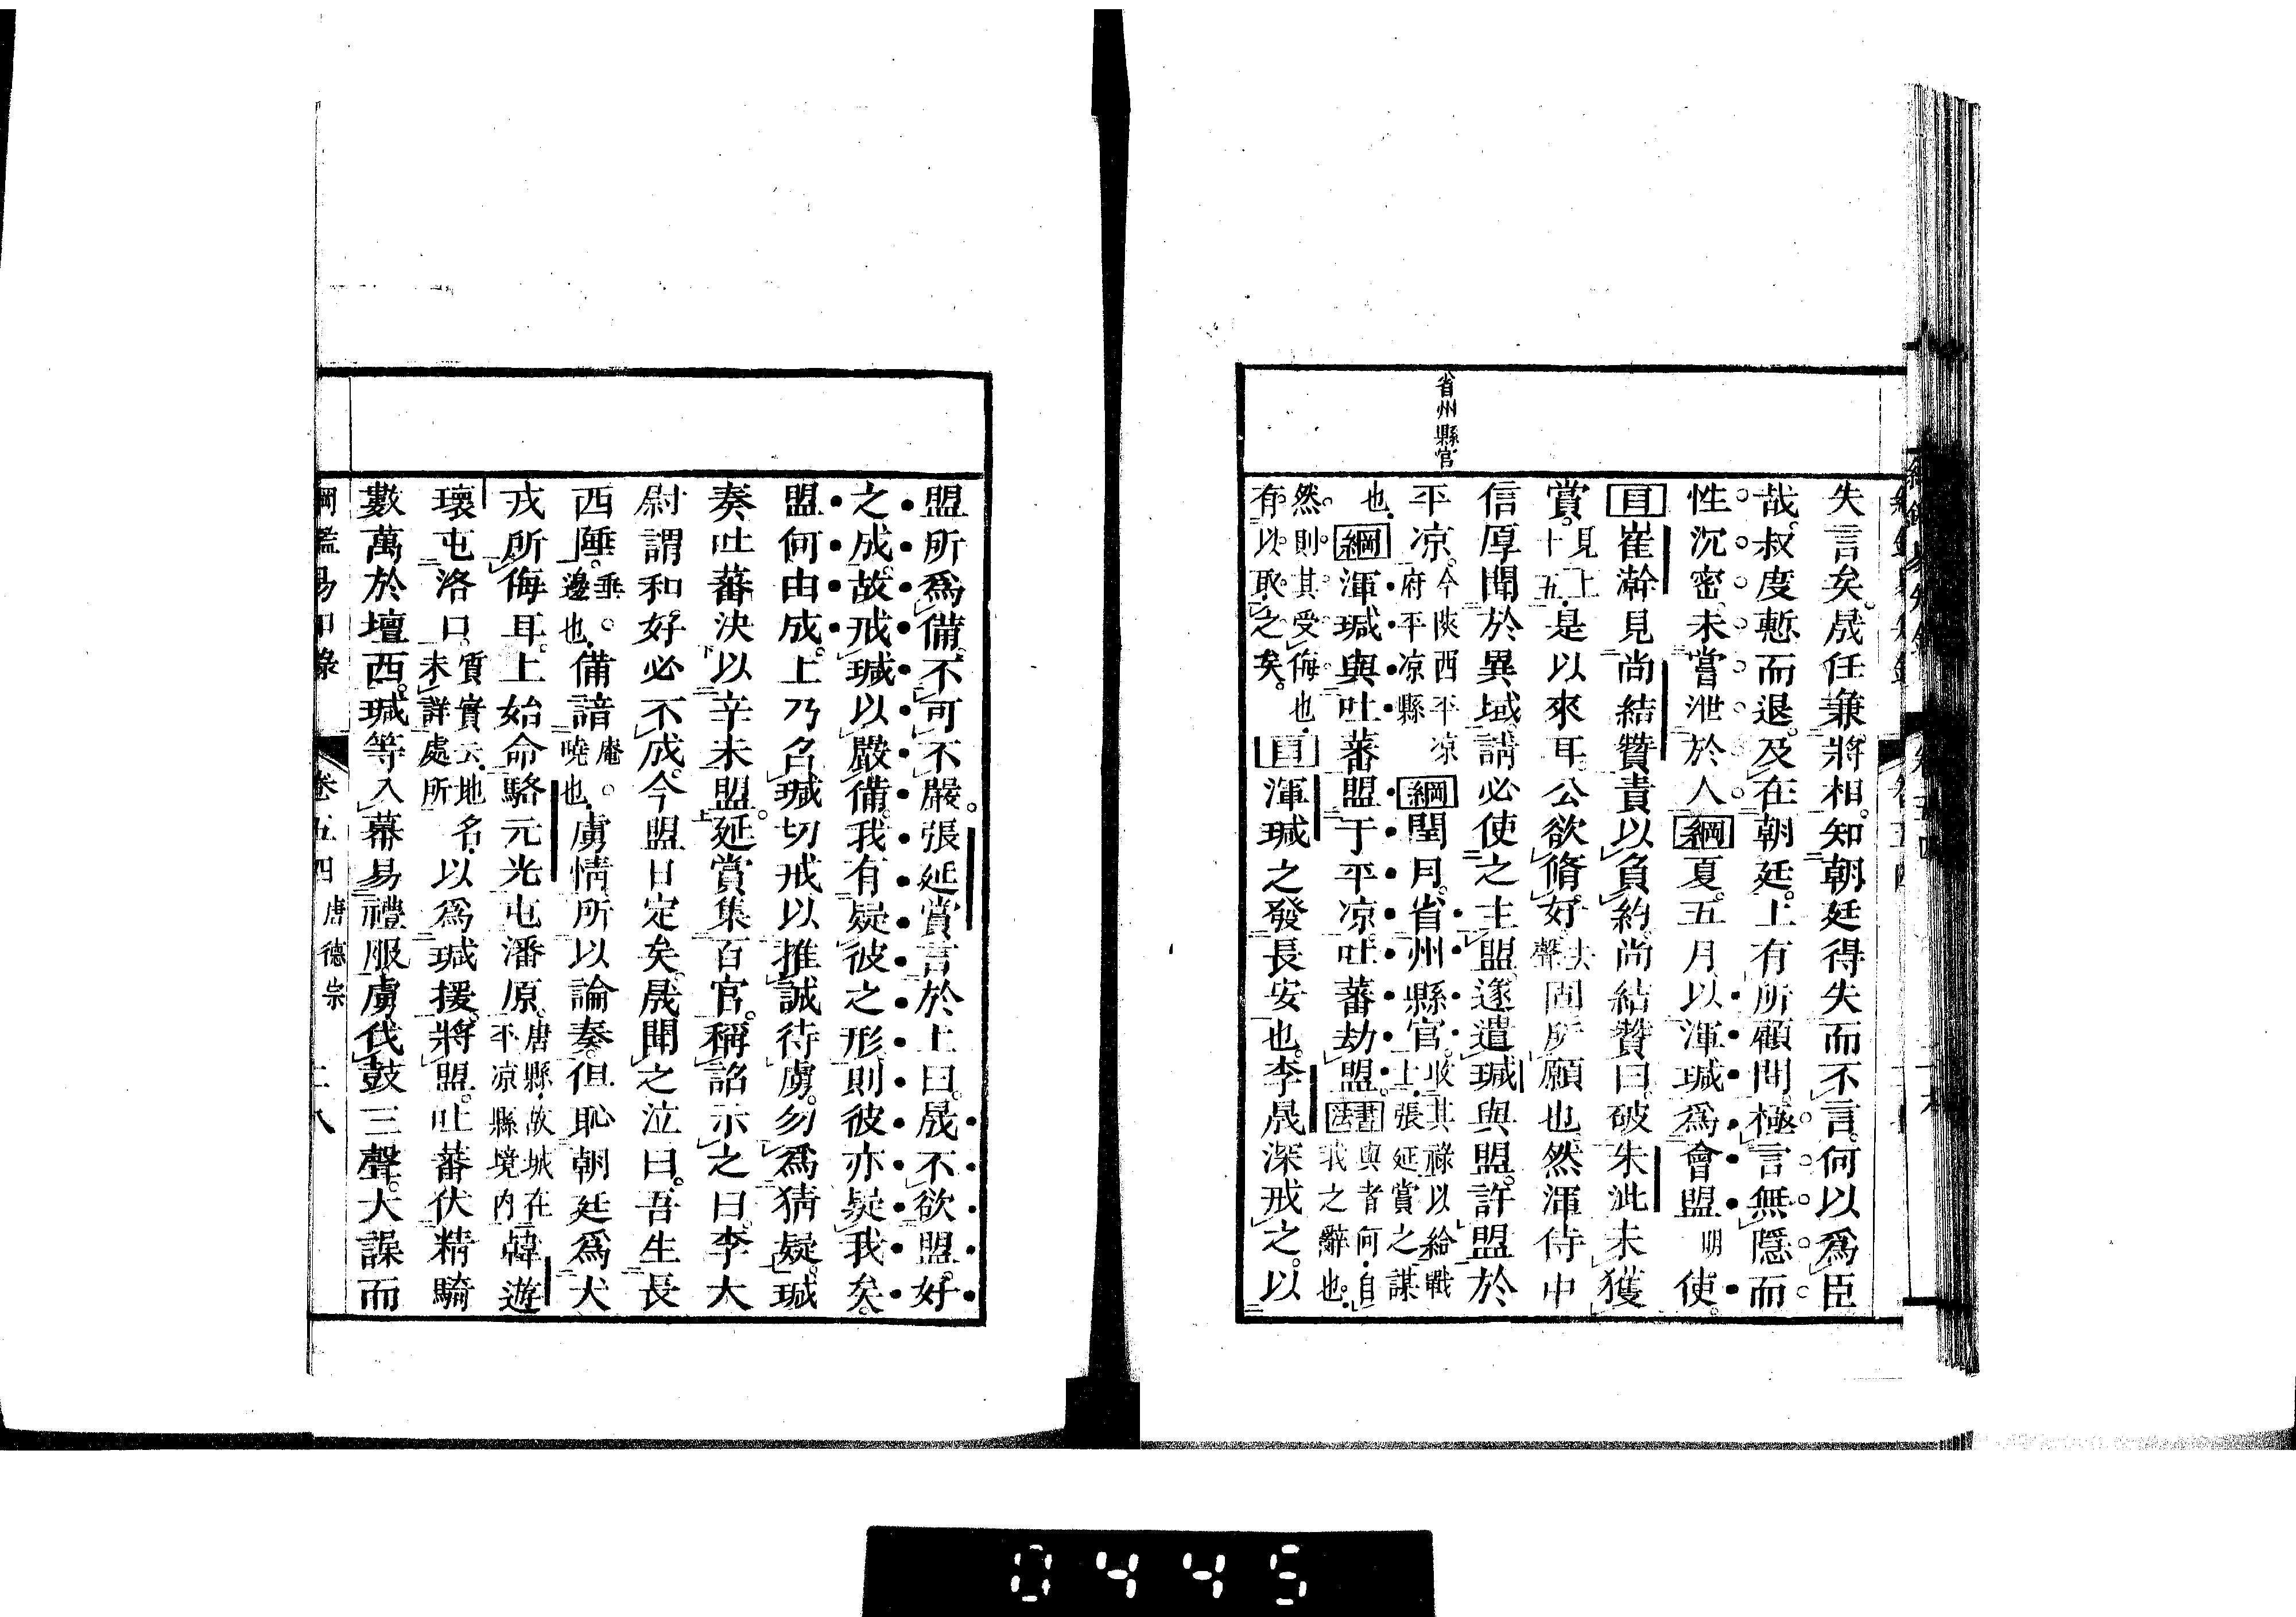 省州縣官
失言矣。晟任兼將相。知朝廷得失而不言。何以爲臣
哉。叔度慙而退。及在朝廷。上有所顧問。極言無隱。而
性沉密。未嘗泄於人。綱夏。五月。以渾瑊爲會盟明使。
目崔澣見尚結贊。責以負約。尚結贊曰。破朱泚。未獲
賞。見上十五。是以來耳。公欲脩好。去聲固所願也。然渾侍中
信厚聞於異域。請必使之主盟。遂遣瑊與盟。許盟於
平凉。今陝西平凉府平凉縣綱閏月。省州縣官。收其祿以給戰士。張延賞之謀
也。綱渾瑊與吐蕃盟于平凉。吐蕃劫盟。書法書與者何。自我之辭也。
然則其受侮也。有以取之矣。目渾瑊之發長安也。李晟深戒之。以
盟所爲備。不可不嚴。張延賞言於上曰。晟不欲盟好
之成。故戒瑊以嚴備。我有疑彼之形。則彼亦疑我矣。
盟何由成。上乃召瑊切戒以推誠待虜。勿爲猜疑。瑊
奏吐蕃決以辛未盟。延賞集百官。稱詔示之曰。李大
尉謂和好必不成。今盟日定矣。晟聞之泣曰。吾生長
西陲。垂。邊也。備諳庵。曉也。虜情。所以論奏。但恥朝廷爲犬
戎所侮耳。上始命駱元光屯潘原。唐縣。故城在平凉縣境内韓遊
瓌屯洛口。質實云。地名。未詳處所以爲瑊援。將盟。吐蕃伏精騎
數萬於壇西。瑊等入幕易禮服。虜伐鼓三聲。大譟而
綱鑑易知錄
卷五四
唐德宗
0445